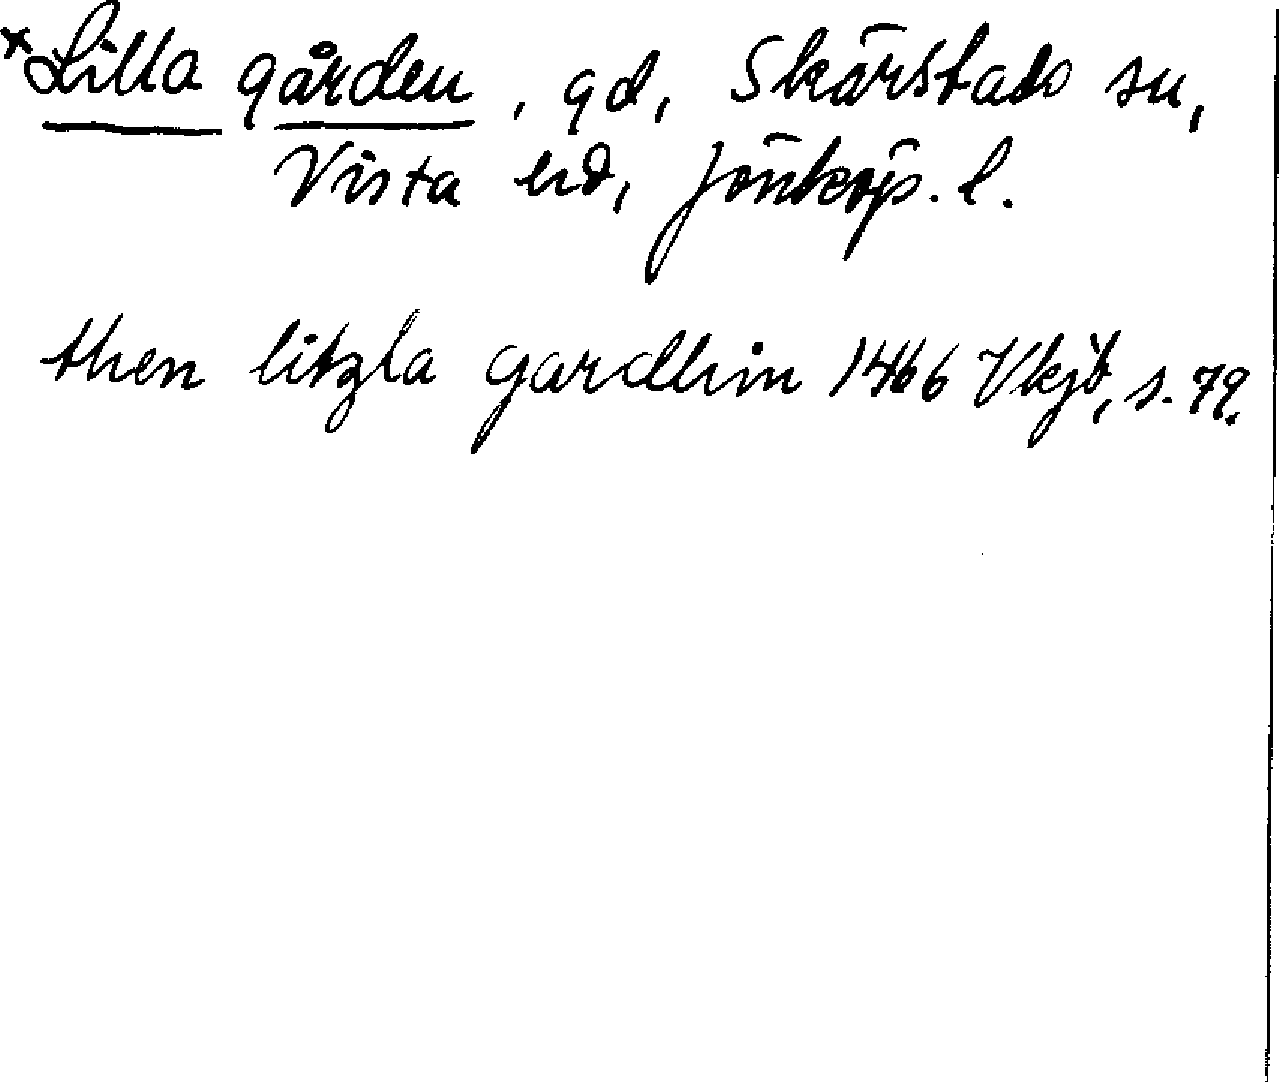 *Lilla gården, gd, Skärstads sn,
Vista hd, Jönköp. l.
then litzla gardhin 1466 Vkjb, s. 79.